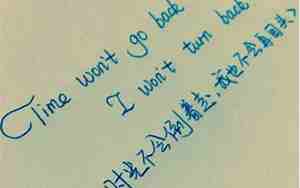 Time won't go back
I won't turn back
时光不会倒着走，我也不会再回头